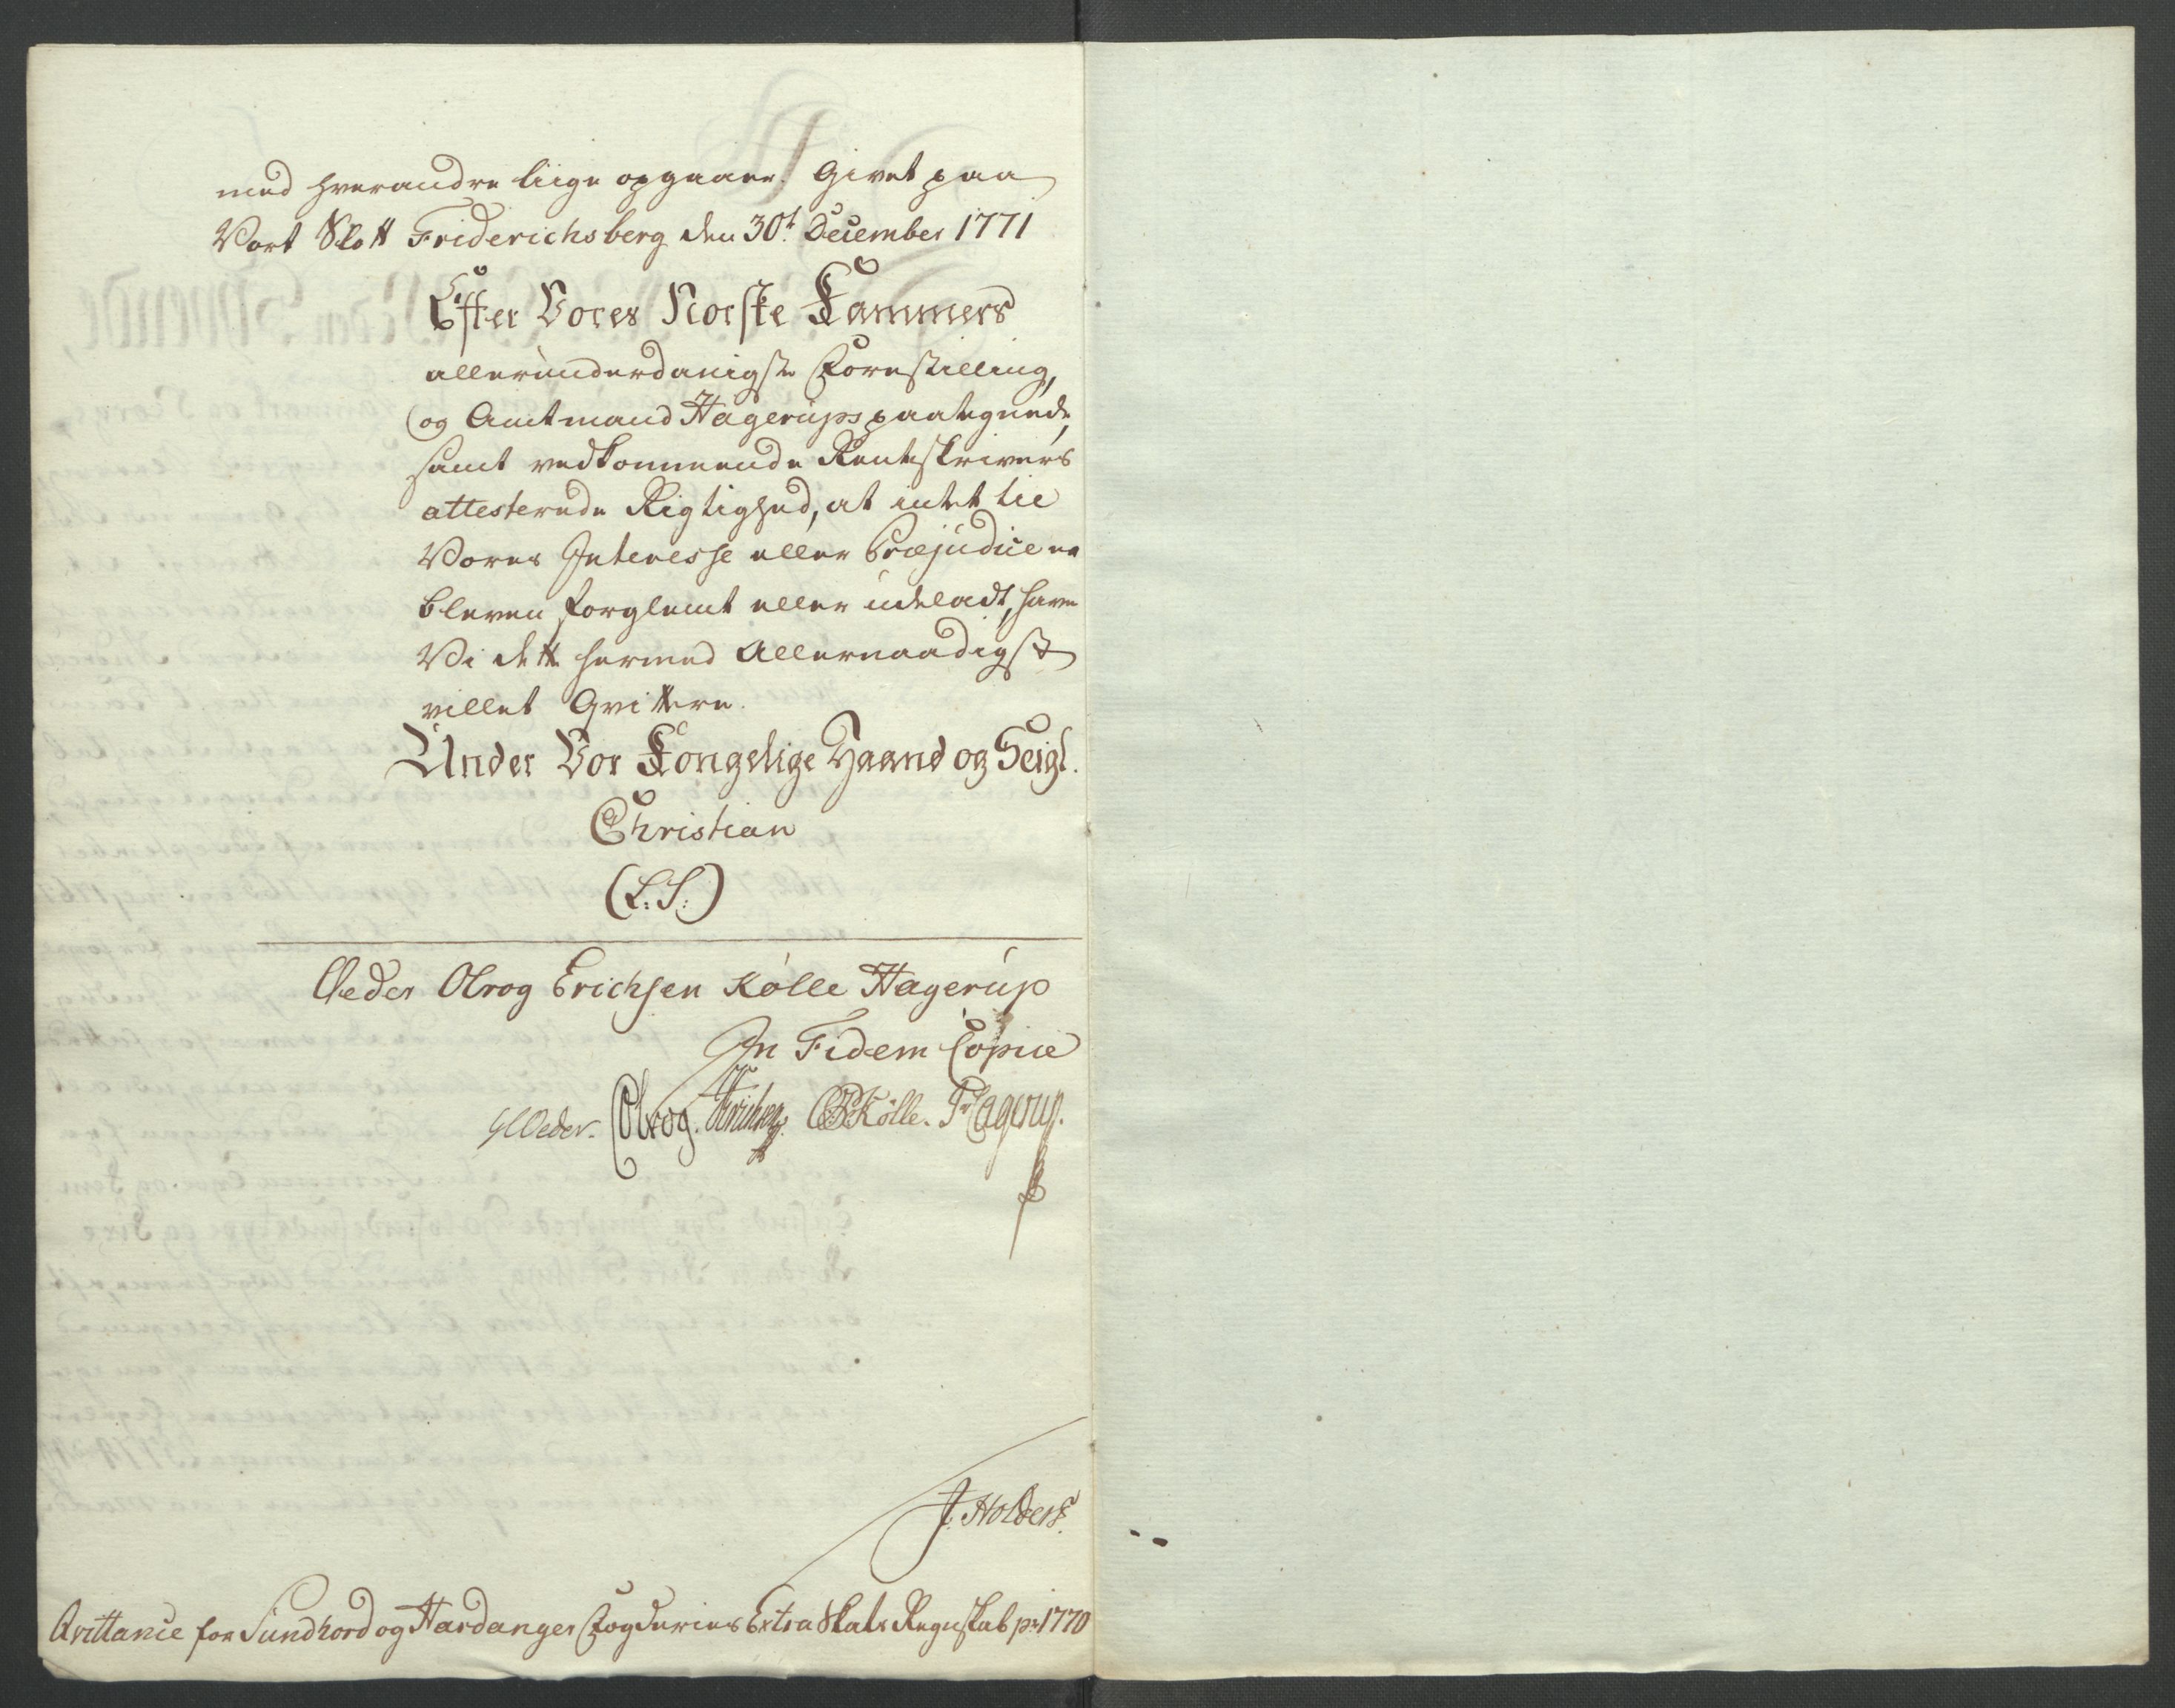 med hverandre liige opgaaer. Givet paa
Vort Slott Friderichsberg den 30t. December 1771
Efter Vores Norske Kammers
allerunderdanigste Forestilling,
og Amtmand Hagerups paategnede,
samt vedkommende Renteskrivers
attesterede Rigtighed, at intet til
Vores Interesse eller Præjudice er
bleven forglemt eller udeladt, have
Vi dette hermed Allernaadigst
villet Qvittere.
Under Vor Kongelige Haand og Seigl.
Christian
(L.S.)
Oeder Olrog Erichsen Kølle Hagerup
In Fidem Copiæ
GCOeder. Olrog. Erichsen. Kølle. Hagerup.
J. Holders.
Qvittance for Sundhord og Hardanger Fogderies Extra Skats Regnskab pr 1770